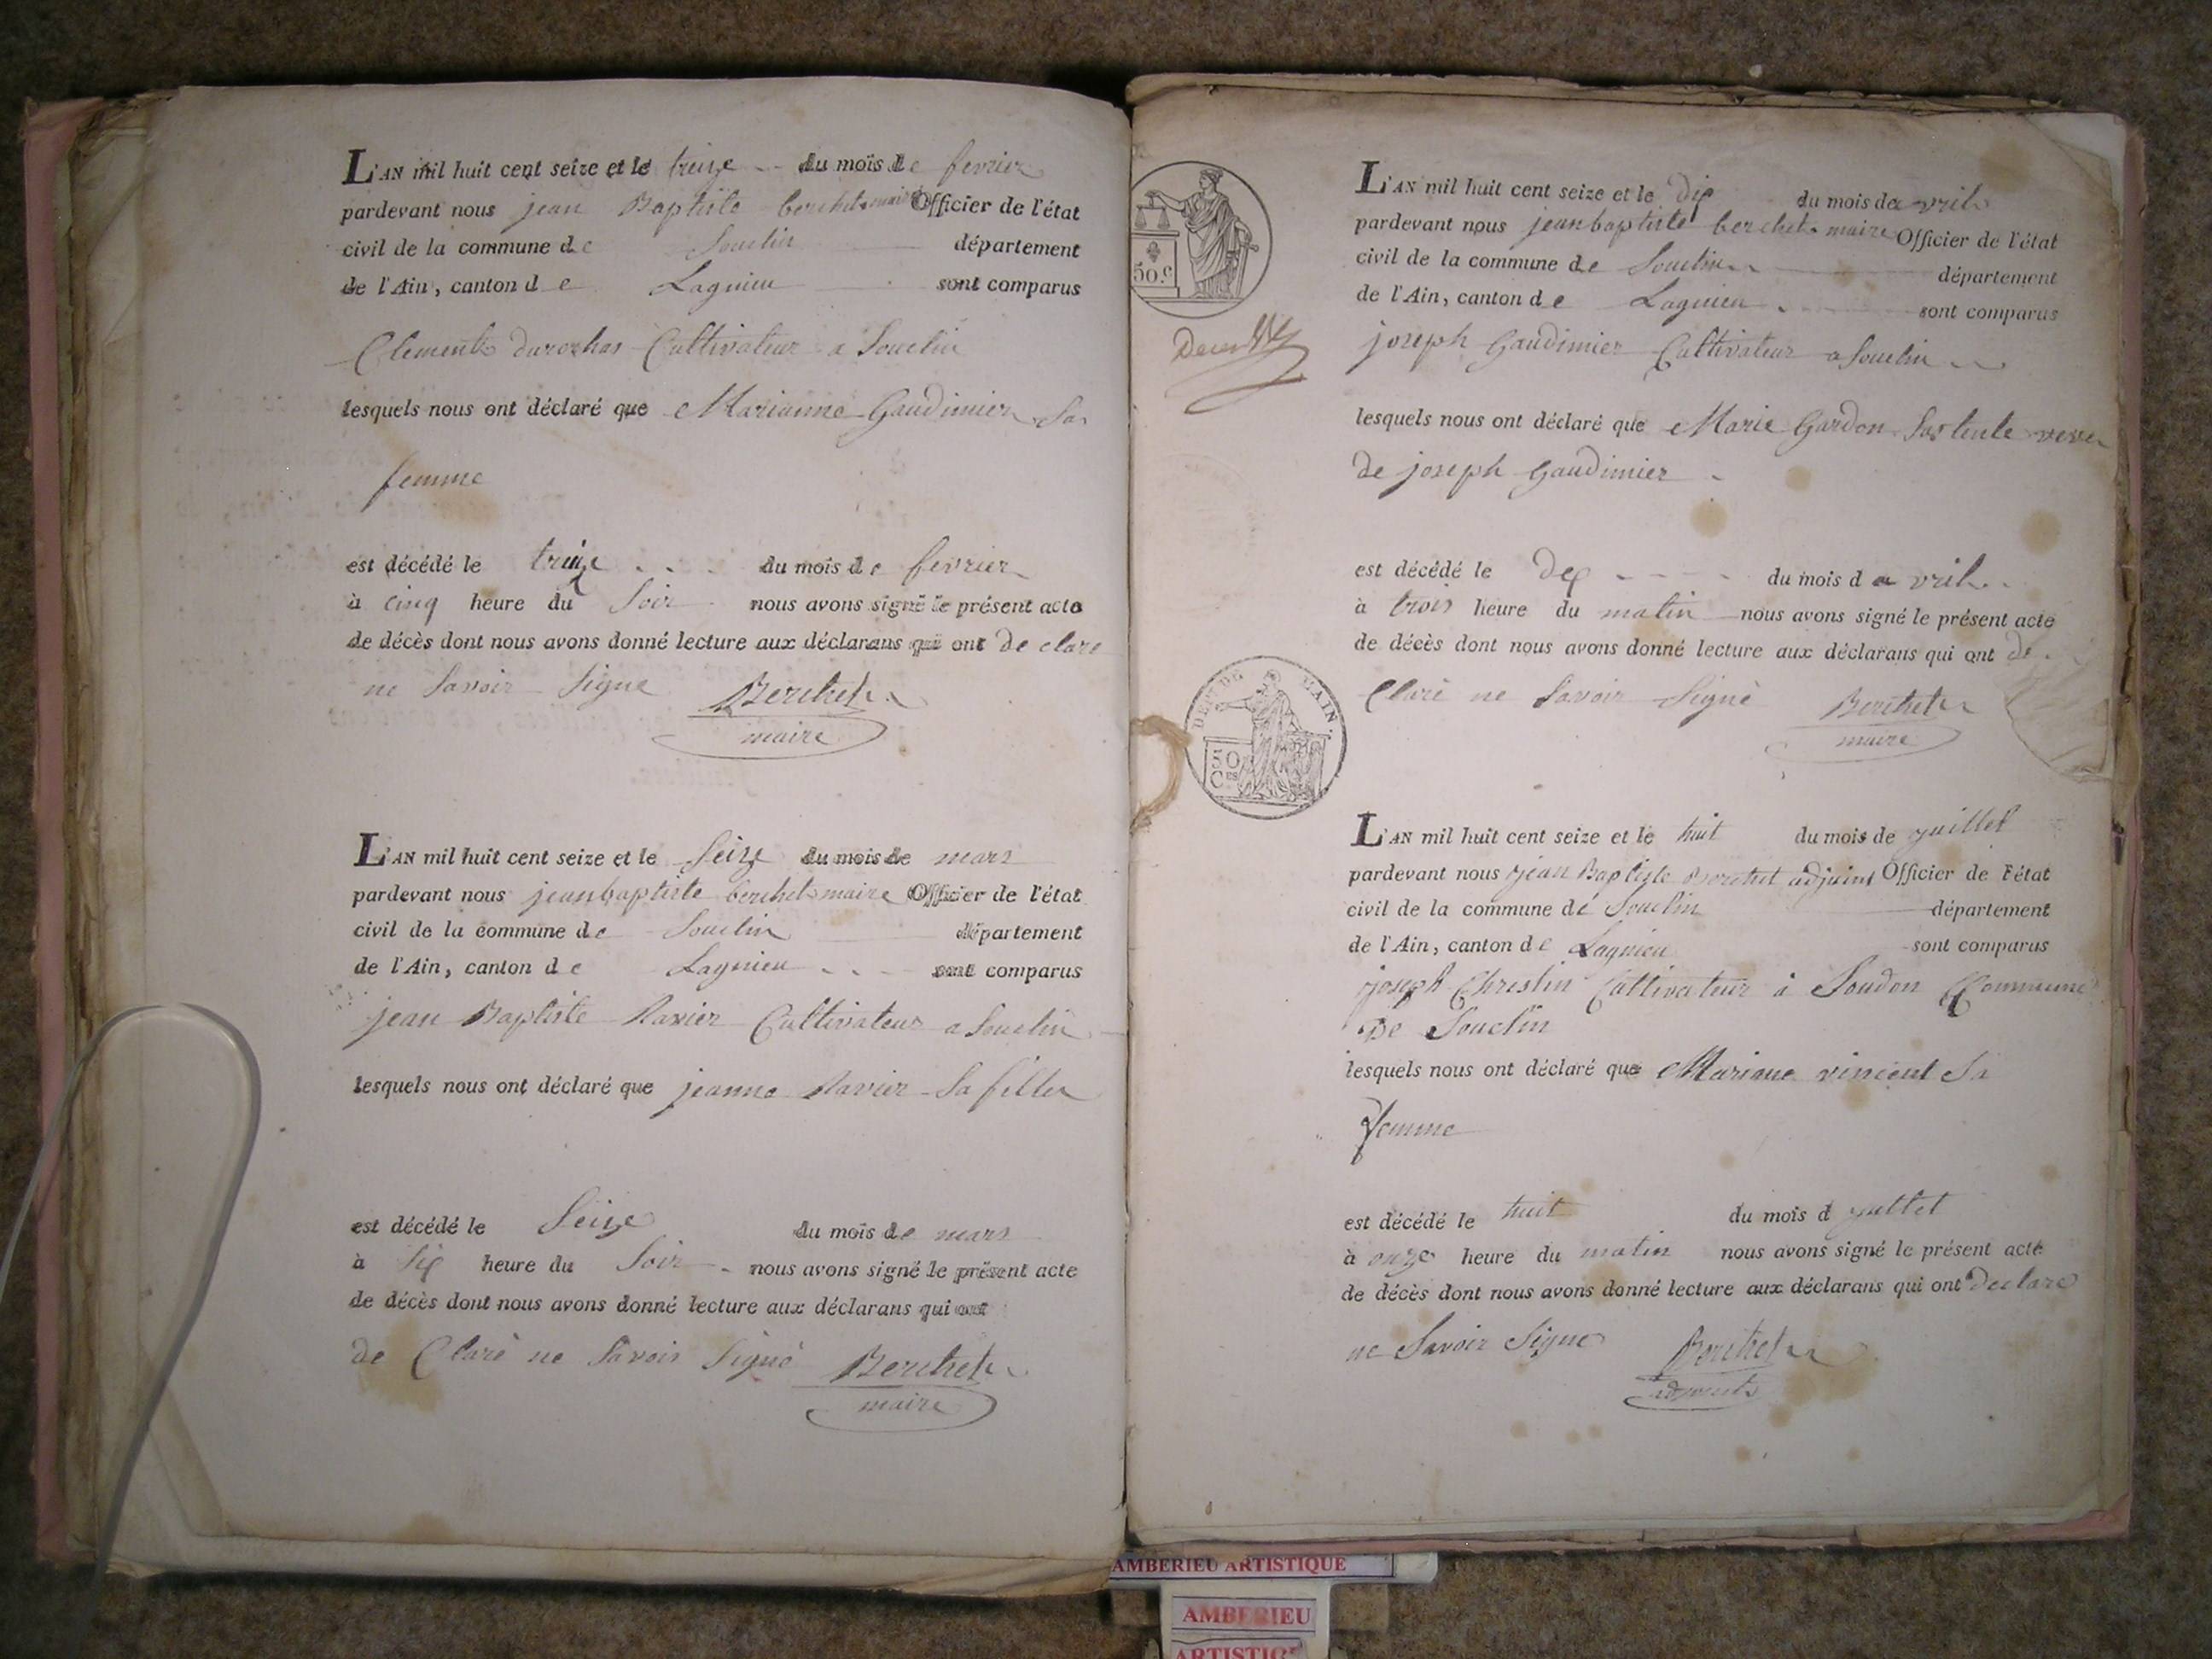 L'AN mil huit cent seize et le treize du mois de fevrier
pardevant nous jean Baptiste berchet maire Officier de l'état
civil de la commune de Souclin département
de l'Ain, canton de Lagnieu sont comparus
Clement Cultivateur a Souclin
lesquels nous ont déclaré que Marianne Gaudimier Sa
femme
est décédé le treize du mois de fevrier
à cinq heure du Soir nous avons signé le présent acte
de décès dont nous avons donné lecture aux déclarans qui ont de clare
ne Savoir Signe Berchet
maire
L'AN mil huit cent seize et le Seize du mois de mars
pardevant nous jean baptiste berchet maire Officier de l'état
civil de la commune de Souclin département
de l'Ain, canton de Lagnieu sont comparus
jean Baptiste Ravier Cultivateur a Souclin
lesquels nous ont déclaré que jeanne Ravier Sa fille
est décédé le Seize du mois de mars
à Six heure du Soir nous avons signé le présent acte
de décès dont nous avons donné lecture aux déclarans qui ont
de Claré ne Savoir Signé Berchet
maire
50.c
L'AN mil huit cent seize et le dix du mois de avril
pardevant nous jean baptiste berchet maire Officier de l'état
civil de la commune de Souclin département
de l'Ain, canton de Lagnieu sont comparus
joseph Gaudimier Cultivateur a Souclin
lesquels nous ont déclaré que Marie Gardon Sa tente veve
de joseph Gaudimier
est décédé le dix du mois d avril
à trois heure du matin nous avons signé le présent acte
de décès dont nous avons donné lecture aux déclarans qui ont de
Claré ne Savoir Signé Berchet
maire
DEP. DE L'AIN
50
Ces
L'AN mil huit cent seize et le huit du mois de juillet
pardevant nous jean Baptiste Berchet adjoint Officier de l'état
civil de la commune de Souclin département
de l'Ain, canton de Lagnieu sont comparus
joseph Chrestin Cultivateur à Soudon Commune
De Souclin
lesquels nous ont déclaré que Mariane vincent Sa
femme
est décédé le huit du mois d juillet
à onze heure du matin nous avons signé le présent acte
de décès dont nous avons donné lecture aux déclarans qui ont declare
ne Savoir Signe Berchet
adjoint
AMBERIEU ARTISTIQUE
AMBERIEU